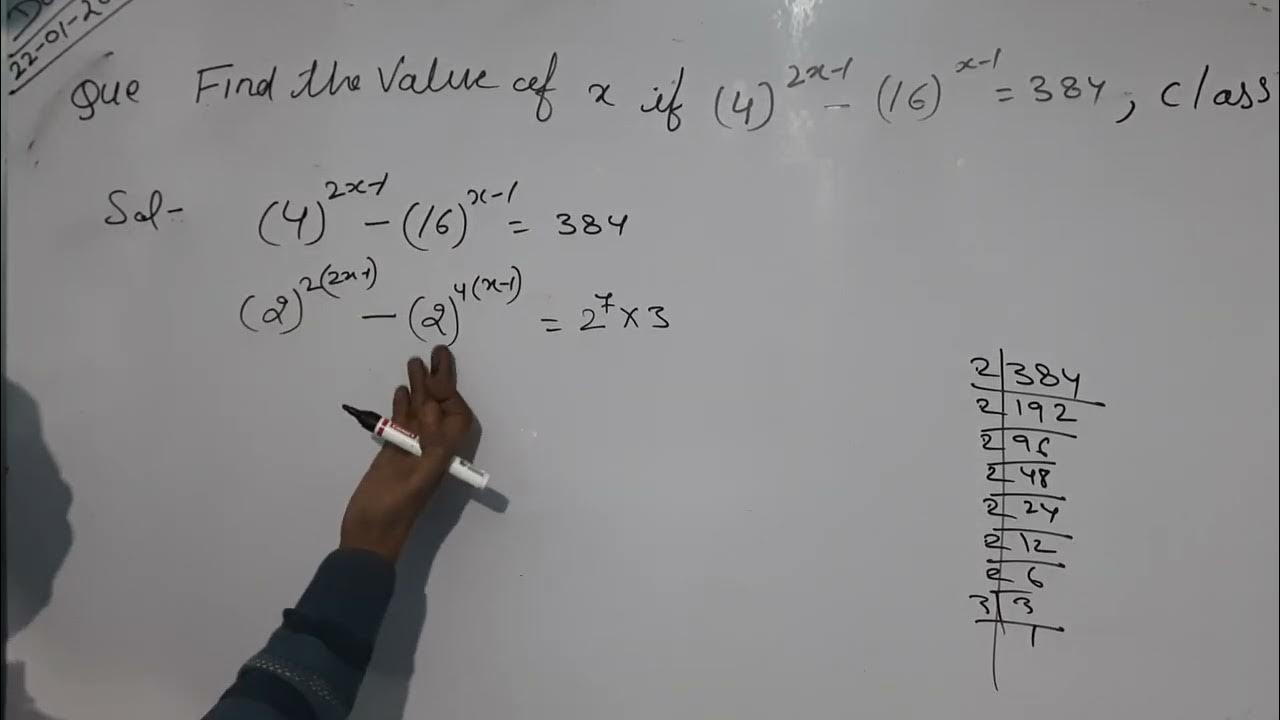 22-01-20
Que Find the Value of x if (4)^{2x-1} - (16)^{x-1} = 384, class
Sol- (4)^{2x-1} - (16)^{x-1} = 384
(2)^{2(2x-1)} - (2)^{4(x-1)} = 2^7 × 3
2 | 384
2 | 192
2 | 96
2 | 48
2 | 24
2 | 12
2 | 6
3 | 3
1